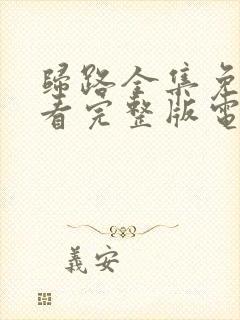 歸路全集免
看完整版電
義安